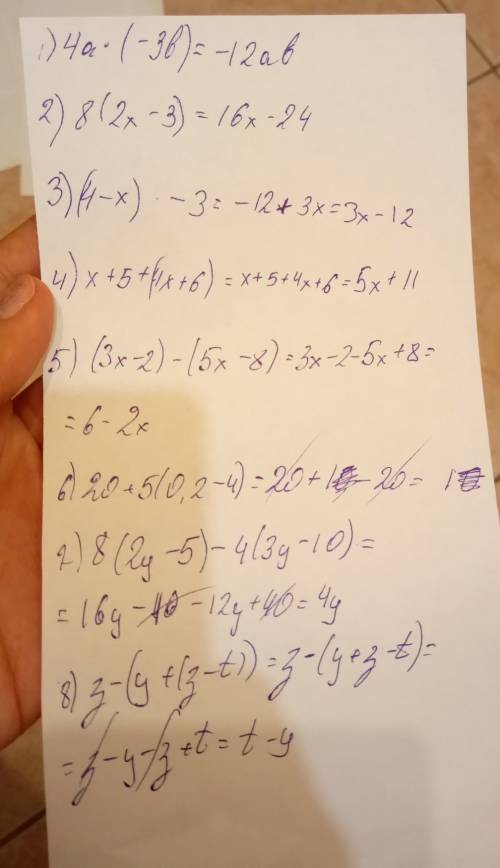 1) 4a · (-3b) = -12ab
2) 8(2x - 3) = 16x - 24
3) (4-x) · -3 = -12 + 3x = 3x - 12
4) x + 5 + (4x + 6) = x + 5 + 4x + 6 = 5x + 11
5) (3x - 2) - (5x - 8) = 3x - 2 - 5x + 8 =
= 6 - 2x
6) 20 + 5(0,2 - 4) = 20 + 1 - 20 = 1
7) 8(2y - 5) - 4(3y - 10) =
= 16y - 40 - 12y + 40 = 4y
8) z - (y + (z - t)) = z - (y + z - t) =
= z - y - z + t = t - y